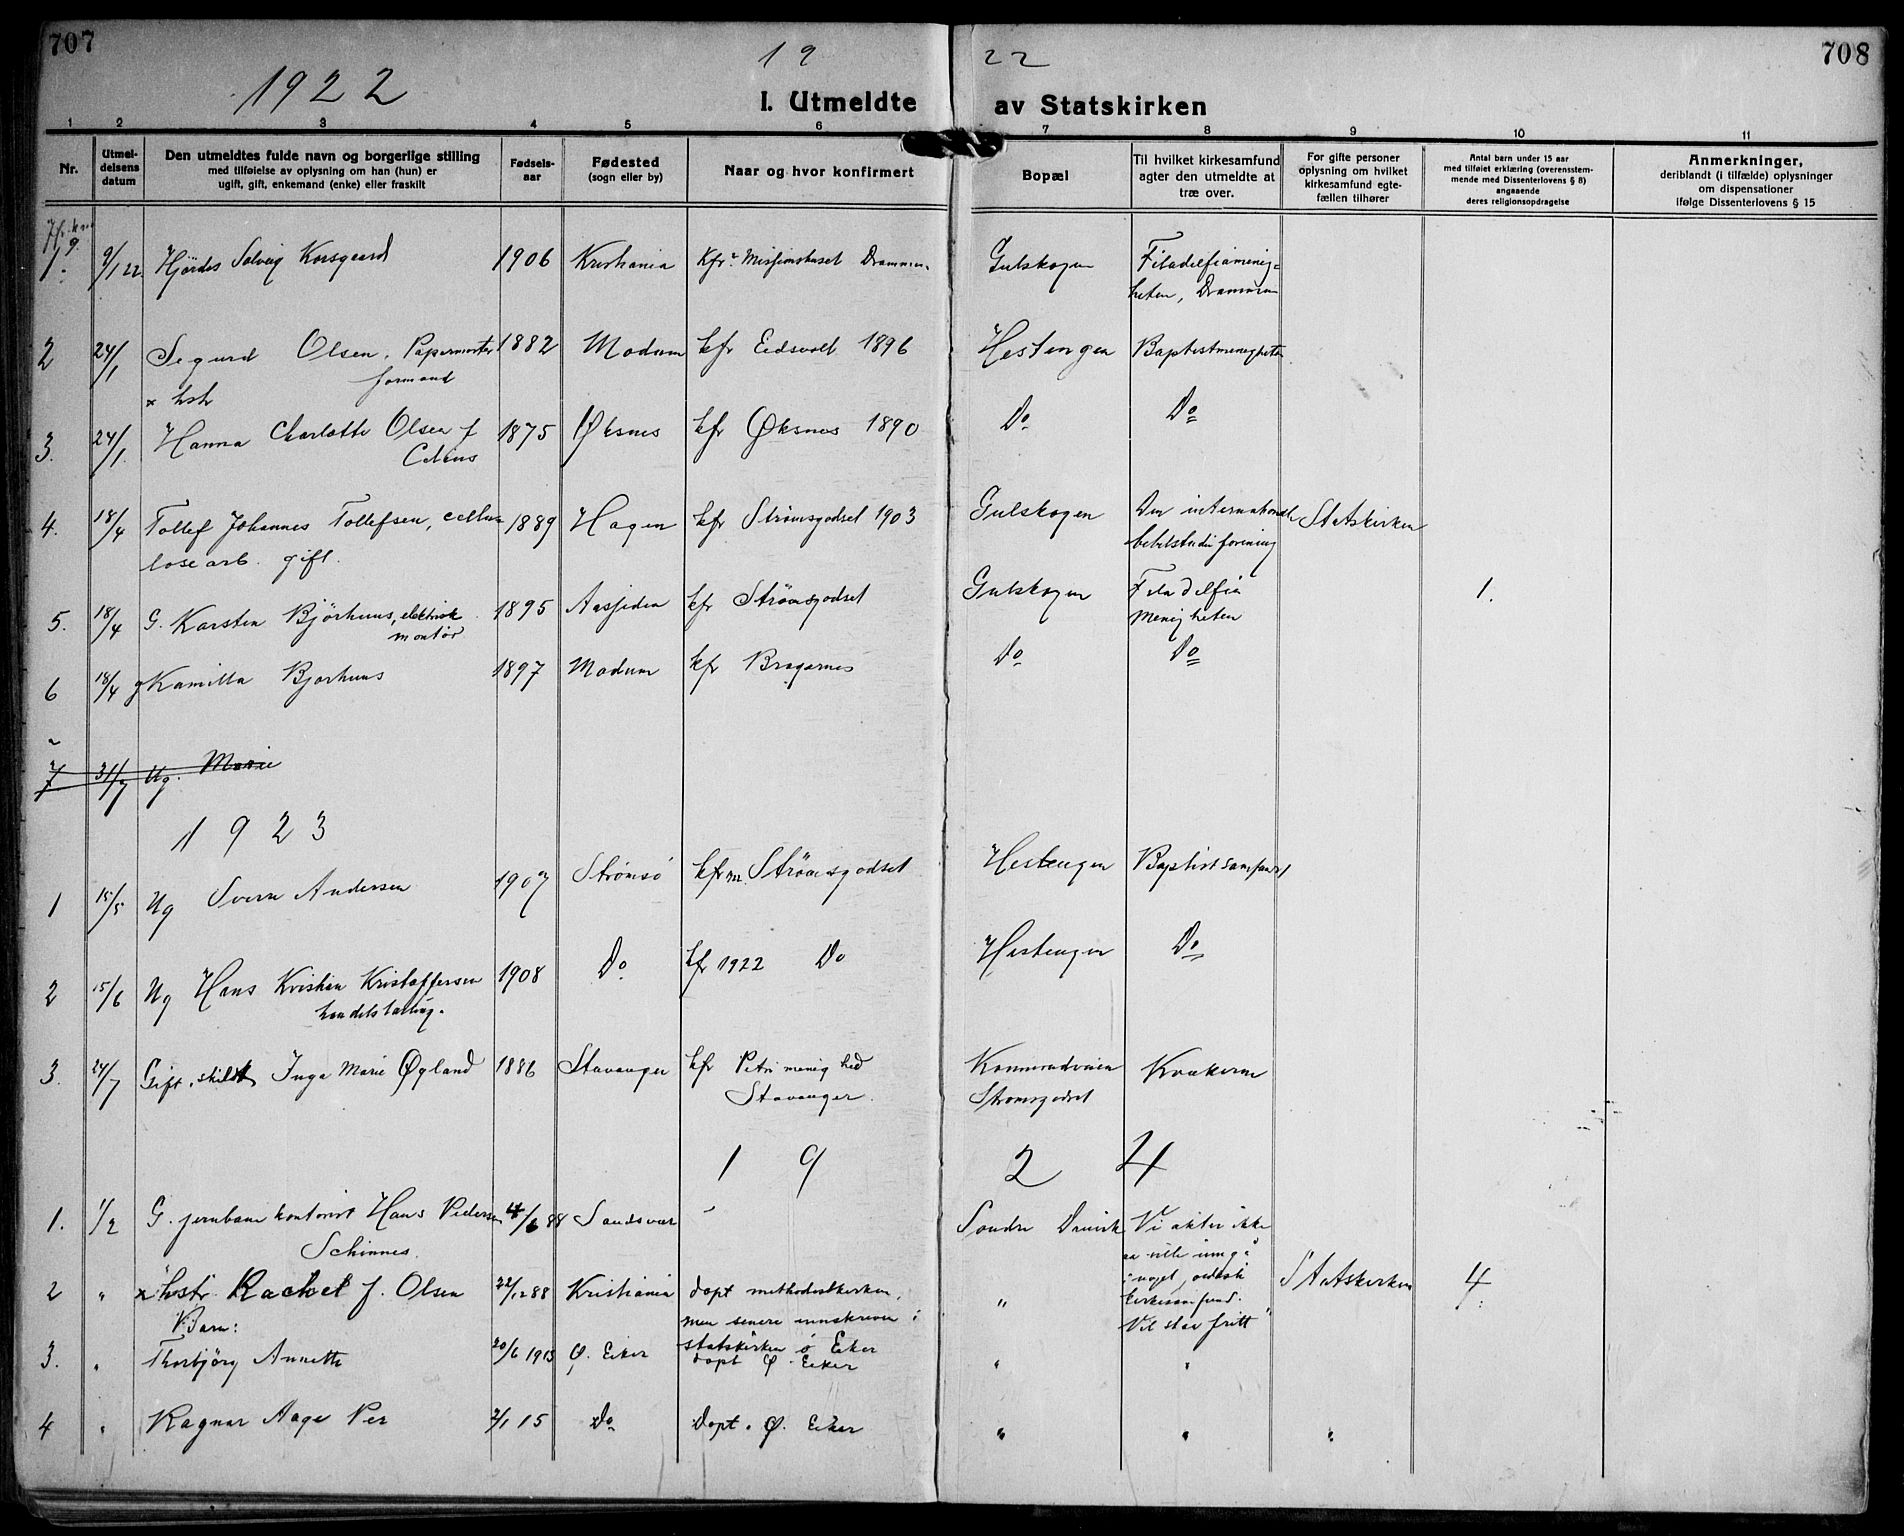 707
708
1922
19
22
I. Utmeldte av Statskirken
1 2 3 4 5 6 7 8 9 10 11
Nr.
Utmel-
delsens
datum
Den utmeldtes fulde navn og borgerlige stilling
med tilføielse av oplysning om han (hun) er
ugift, gift, enkemand (enke) eller fraskilt
Fødsels-
aar
Fødested
(sogn eller by)
Naar og hvor konfirmert
Bopæl
Til hvilket kirkesamfund
agter den utmeldte at
træ over.
For gifte personer
oplysning om hvilket
kirkesamfund egte-
fællen tilhører
Antal barn under 15 aar
med tilføiet erklæring (overensstem-
mende med Dissenterlovens § 8)
angaaende
deres religionsopdragelse
Anmerkninger,
deriblandt (i tilfælde) oplysninger
om dispensationer
ifølge Dissenterlovens § 15
1. 9/1 22. Hjördis Solveig Korsgaard 1906 Kristiania Kfr. Missionshuset Drammen. Gulskogen Filadelfiamenig-
heten, Drammen
2 24/1 Sigurd Olsen, Papermester 1882 Modum kfr Eidsvold 1896 Hestengen Baptistmenigheten
formand
x hstr
3. 24/1. Hanna Charlotte Olsen f 1875 Øksnes kfr Øksnes 1890 Do Do
4. 18/4 Tollef Johannes Tollefsen, cellu- 1889 Hagen kfr Strømsgodset 1903 Gulskogen Den internationale Statskirken
losearb. gift. bibelstudieforening
5. 18/4 G. Karsten Bjørhuus, elektrisk 1895 Aassiden kfr Strømsgodset Gulskogen Filadelfia 1.
montør menigheten
6 18/4 g Kamilla Bjørhuus 1897 Modum kfr Bragernes Do Do
7 31/7 Ug. Marie
1923
1 15/5 Ug Sverre Andersen 1907 Strømsø kfrm. Strømsgodset Hestengen Baptistsamfund
2 15/6 Ug Hans Kristian Kristoffersen 1908 Do kfr 1922 Do Hestengen Do
handelslærling.
3. 24/7 Gift, skildt Inga Marie Øgland 1886 Stavanger kfr Petri menighed Konnerudveien Kvækerne
Stavanger. Strømsgodset
1924
1. 1/2 G. jernbanekontorist Hans Pedersen 4/6 88 Sandsvær Søndre Vi akter ikke
Schinnes. aa ville inngå
2 " x hstr. Rachel f. Olsen 22/12 88 Kristiania døpt methodistkirken, " i noget Statskirken 4
men senere innskreven i kirkesamfund.
Barn: statskirken ø Eiker Vil stå fritt"
3. " Thorbjörg Annette 20/6 1913 Ø. Eiker døpt Ø. Eiker " "
4 " Ragnar Aage Per 2/1 15 Do Døpt. Ø. Eiker " " "